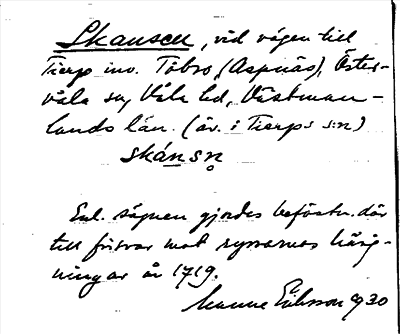 Skansen, vid vägen till
Tierp inv. Töbro, (Aspnäs), Öster-
våla sn, Våla hd, Västman-
lands län. (äv. i Tierps s:n)
skánsn̥
Enl. sägnen gjordes befästn. där
till försvar mot ryssarnas härj-
ningar år 1719.
Manne Eriksson 1930